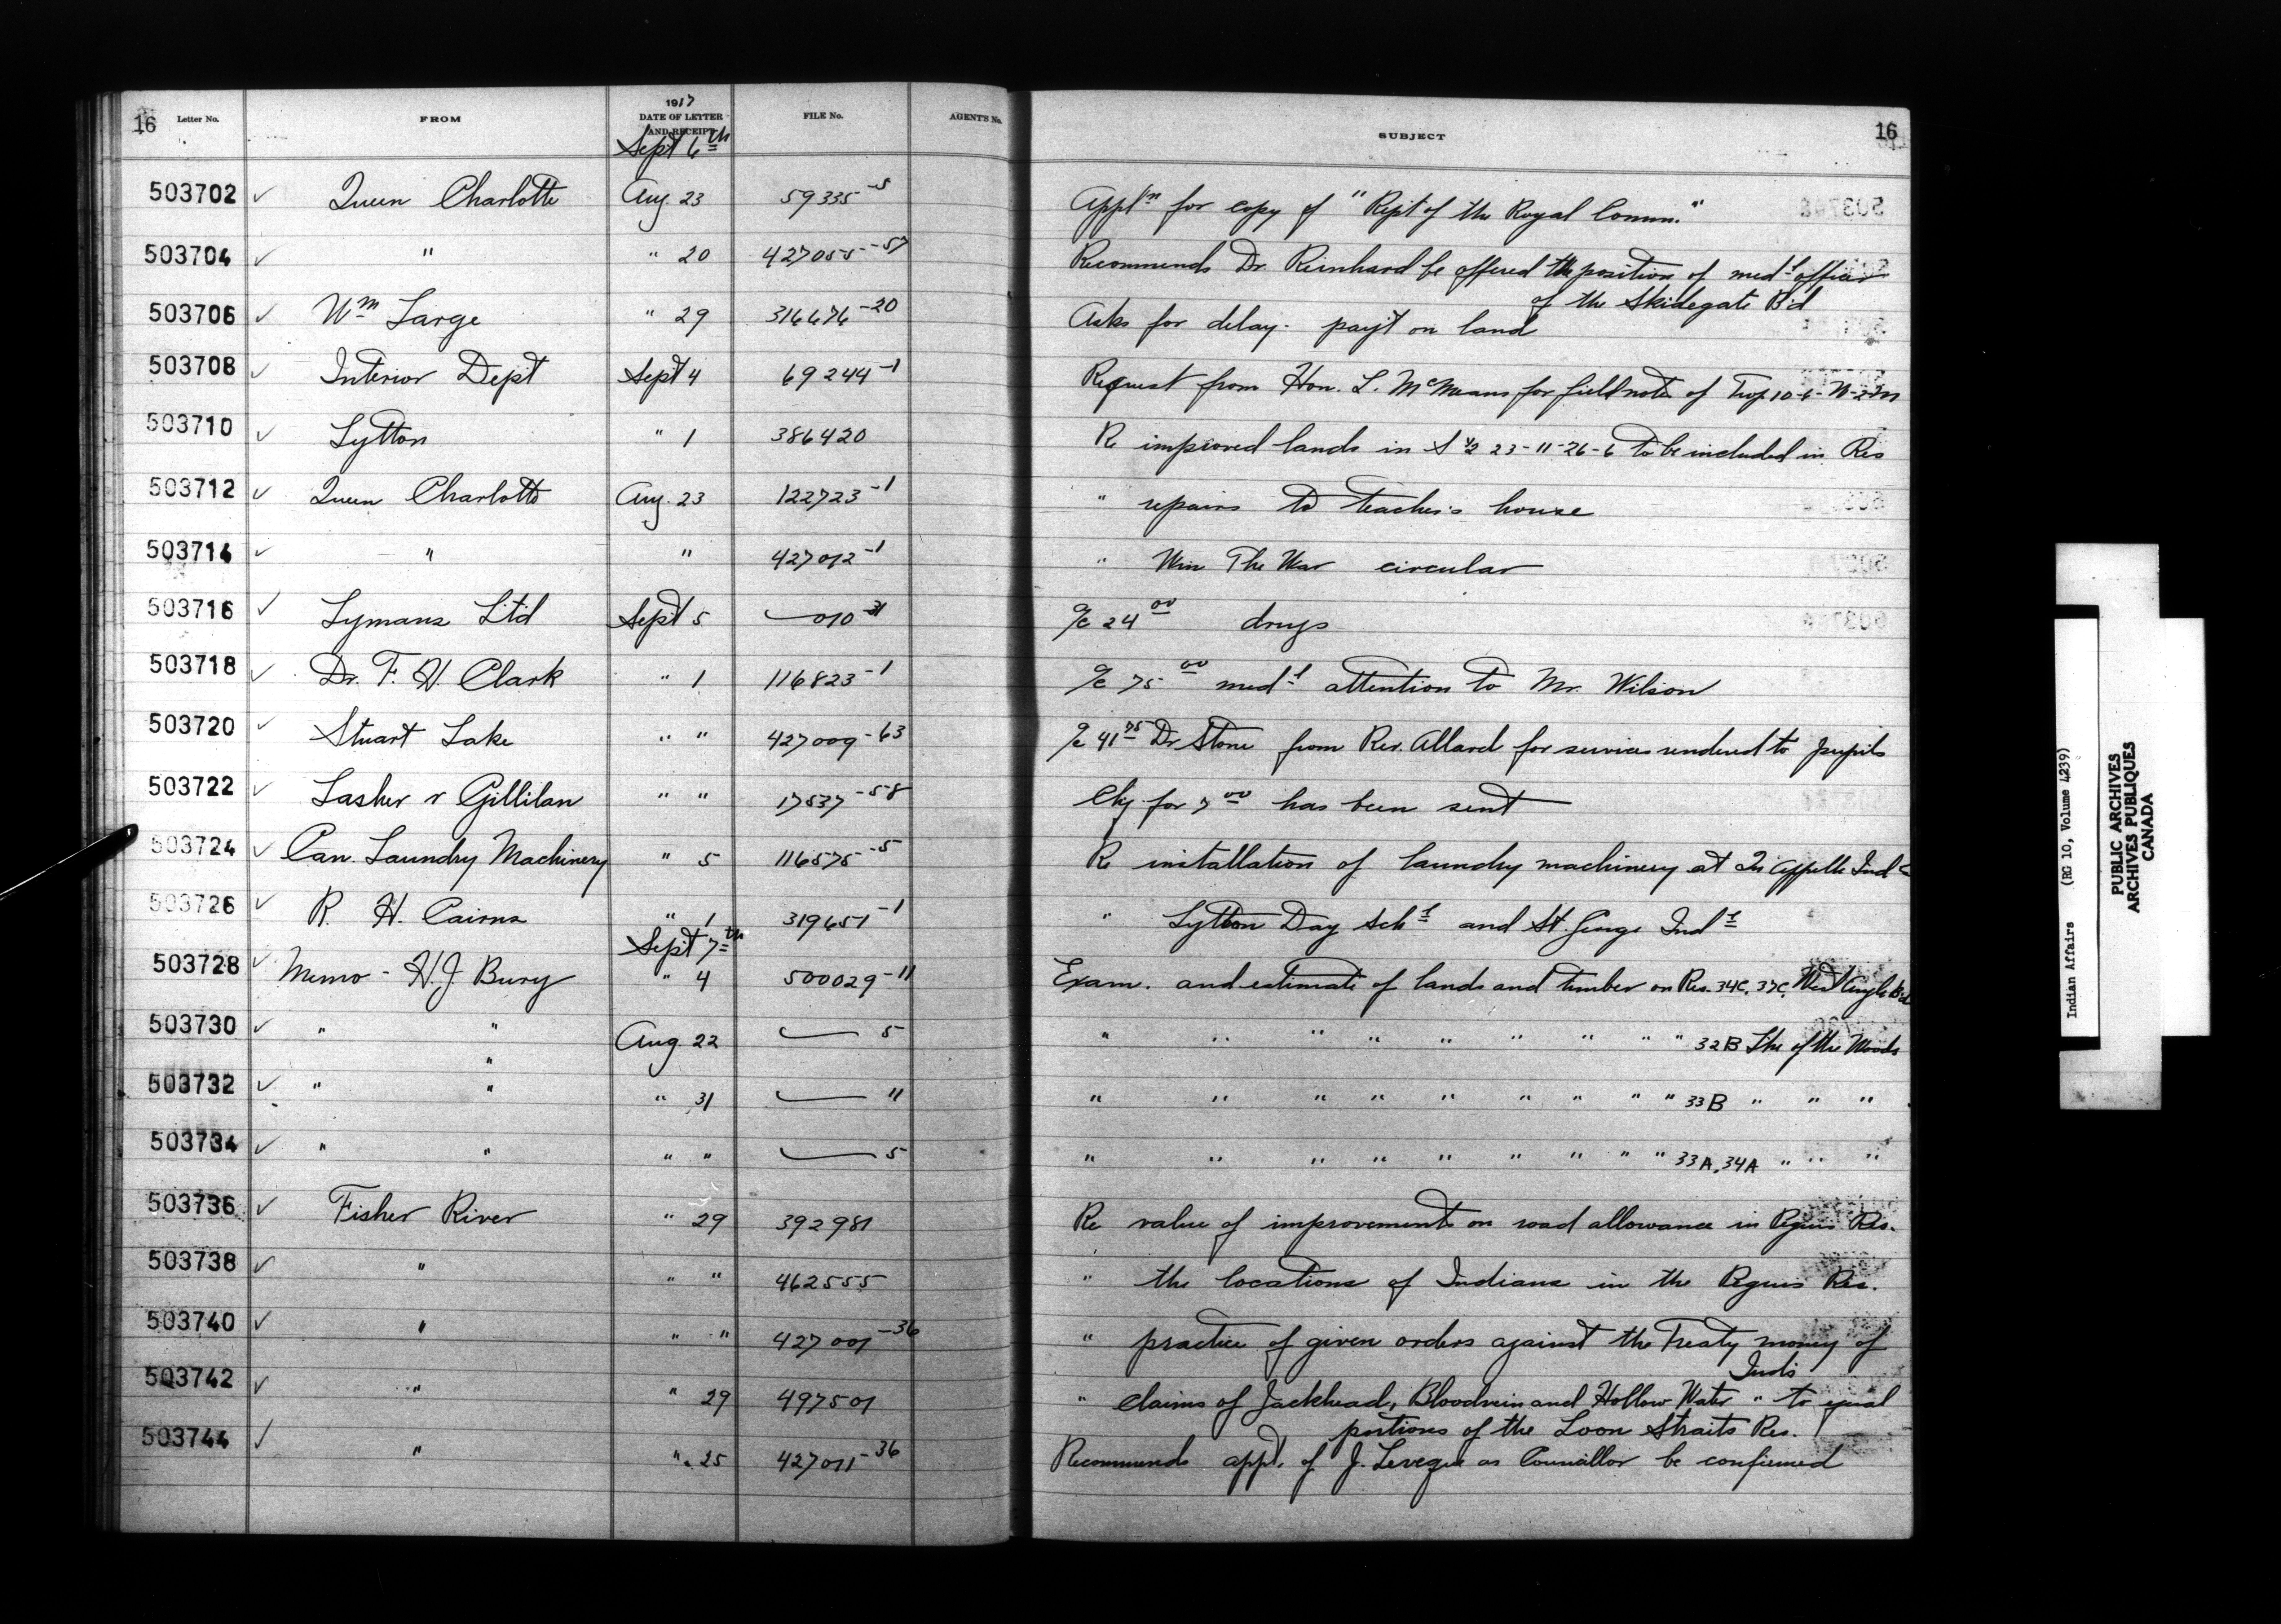 16 Letter No. FROM 1917 DATE OF LETTER AND RECEIPT FILE No. AGENT'S No. SUBJECT 16
Sept 6th
503702 ✓ Queen Charlotte Aug 23 59335-5 Applm for copy of "Rept of the Royal Comm."
503704 ✓ " " 20 427055-57 Recommends Dr. Reinhard be offered the position of medl officer
of the Skidegate B'd
503706 ✓ Wm Large " 29 316676-20 Asks for delay - pay't on land
503708 ✓ Interior Dept Sept 4 69244-1 Request from Hon. L. McMeans for fieldnote of Twp. 10-6-W-2m
503710 ✓ Lytton " 1 386420 Re improved lands in S 1/2 23-11-26-6 to be included in Res
503712 ✓ Queen Charlotte Aug. 23 122723-1 " repairs to teacher's house
503714 ✓ " " 427012-1 " Win The War circular
503716 ✓ Lymans Ltd Sept 5 — 010-31 a/c 24 00 drugs
503718 ✓ Dr. F. H. Clark " 1 116823-1 a/c 75 00 medl attention to Mr. Wilson
503720 ✓ Stuart Lake " " 427009-63 a/c 41 75 Dr Stone from Rev. Allard for services rendered to pupils
503722 ✓ Lasher v Gillilan " " 17537-58 Chq for 7 00 has been sent
503724 ✓ Can. Laundry Machinery " 5 116575-5 Re installation of laundry machinery at Qu'Appelle Ind
503726 ✓ R. H. Cairns " 1 319651-1 " Lytton Day Schl and St. George Indl
Sept 7th
503728 ✓ Memo - H.J. Bury " 4 500029-11 Exam. and estimate of lands and timber on Res. 34C, 37C, West Angle B'd
503730 ✓ " " Aug. 22 — 5 " " " " " " " " " 32B Lke of the Woods
"
503732 ✓ " " " 31 — 11 " " " " " " " " " 33B " " "
503734 ✓ " " " " — 5 " " " " " " " " " 33A, 34A " " "
503736 ✓ Fisher River " 29 392981 Re value of improvements on road allowance in Peguis Res.
503738 ✓ " " " 462555 " the locations of Indians in the Peguis Res.
503740 ✓ " " " 427001-36 " practice of given orders against the Treaty money of
Inds
503742 ✓ " " 29 497501 " claims of Jackhead, Bloodvein and Hollow Water " to equal
portions of the Loon Straits Res.
503744 ✓ " " 25 427011-36 Recommends appt. of J. Leveque as Councillor be confirmed
Indian Affairs (RG 10, Volume 4239)
PUBLIC ARCHIVES
ARCHIVES PUBLIQUES
CANADA